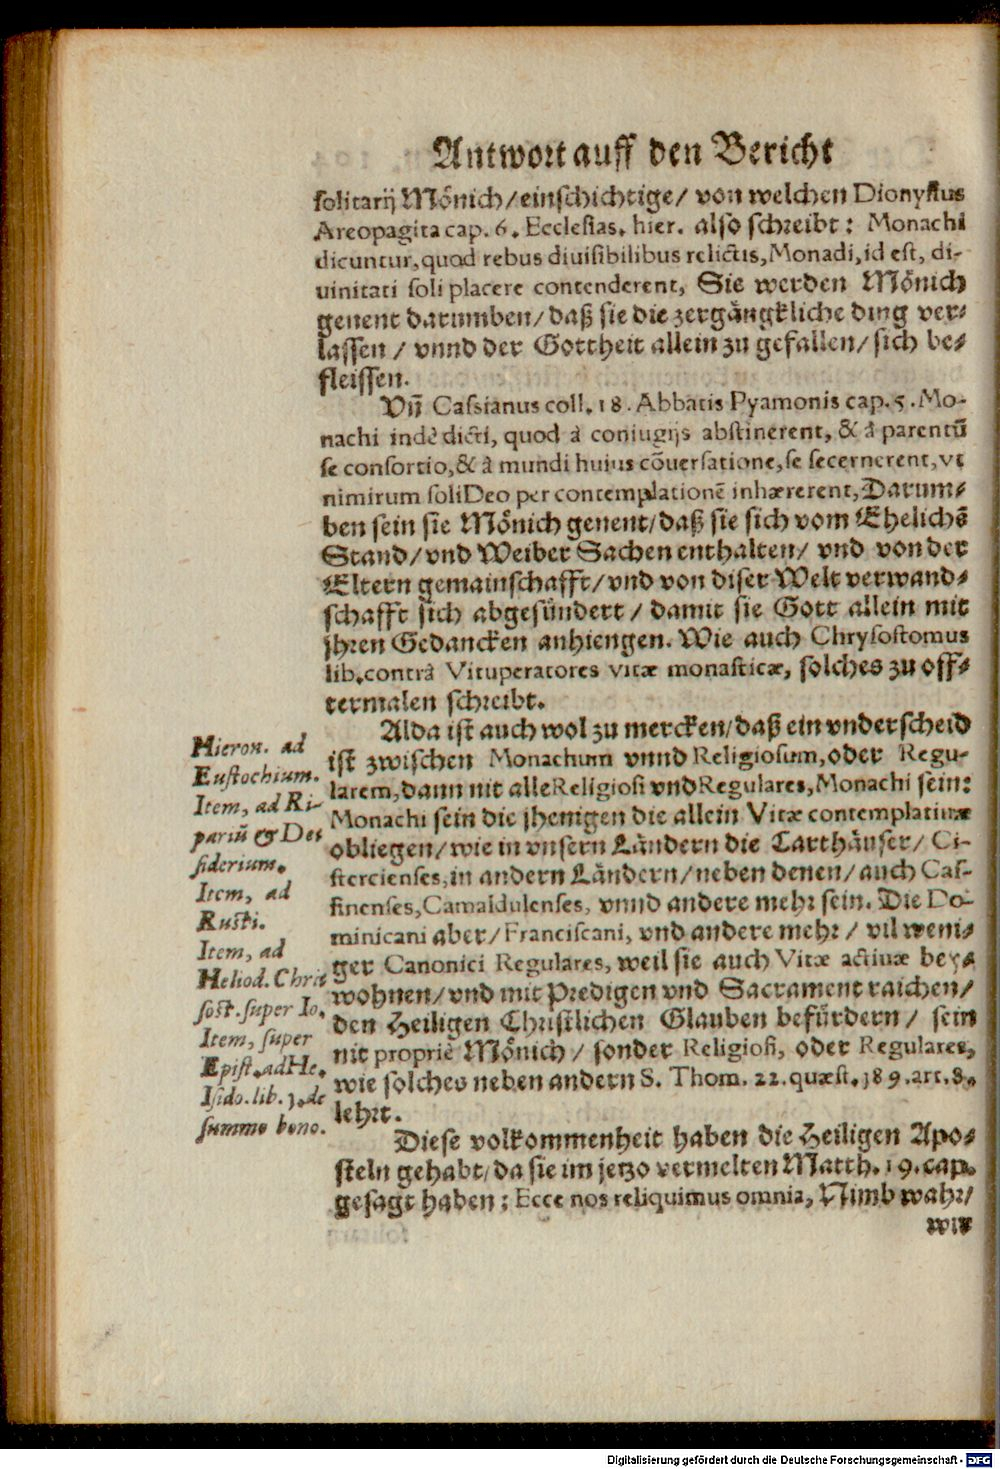 Antwort auff den Bericht
solitarij Mönich/einschichtige/ von welchen Dionysius
Areopagita cap. 6. Ecclesias. hier. also schreibt: Monachi
dicuntur, quod rebus diuisibilibus relictis, Monadi, id est, di-
uinitati soli placere contenderent, Sie werden Mönich
genent darumben/daß sie die zergängkliche ding ver-
lassen / vnnd der Gottheit allein zu gefallen/sich be-
fleissen.
Vñ Cassianus coll. 18. Abbatis Pyamonis cap. 5. Mo-
nachi indè dicti, quod à coniugijs abstinerent, & à parentũ
se consortio, & à mundi huius cõuersatione, se secernerent, vt
nimirum soli Deo per contemplationē inhærerent, Darum-
ben sein sie Mönich genent/daß sie sich vom Ehelichē
Stand/vnd Weiber Sachen enthalten/ vnd von der
Eltern gemainschafft/vnd von diser Welt verwand-
schafft sich abgesündert / damit sie Gott allein mit
jhren Gedancken anhiengen. Wie auch Chrysostomus
lib. contrà Vituperatores vitæ monasticæ, solches zu off-
termalen schreibt.
Alda ist auch wol zu mercken/daß ein vnderscheid
ist zwischen Monachum vnnd Religiosum, oder Regu-
larem, dann nit alle Religiosi vnd Regulares, Monachi sein:
Monachi sein die jhenigen die allein Vitæ contemplatiuæ
obliegen/wie in vnsern Ländern die Carthäuser/ Ci-
stercienses, in andern Ländern/neben denen/auch Cas-
sinenses, Camaldulenses, vnnd andere mehr sein. Die Do-
minicani aber/Franciscani, vnd andere mehr / vil weni-
ger Canonici Regulares, weil sie auch Vitæ actiuæ bey-
wohnen/vnd mit Predigen vnd Sacrament raichen/
den Heiligen Christlichen Glauben befürdern/ sein
nit propriè Mönich / sonder Religiosi, oder Regulares,
wie solches neben andern S. Thom. 22. quæst. 189. art. 8.
lehrt.
Diese volkommenheit haben die Heiligen Apo-
steln gehabt/da sie im jetzo vermelten Matth. 19. cap.
gesagt haben: Ecce nos reliquimus omnia, Nimb wahr/
wir
Hieron. ad
Eustochium.
Item, ad Ri-
pariũ & De-
siderium.
Item, ad
Rusti.
Item, ad
Heliod. Chri
sost. super Io.
Item, super
Epist. ad He.
Isido. lib. 3. de
summo bono.
Digitalisierung gefördert durch die Deutsche Forschungsgemeinschaft - DFG